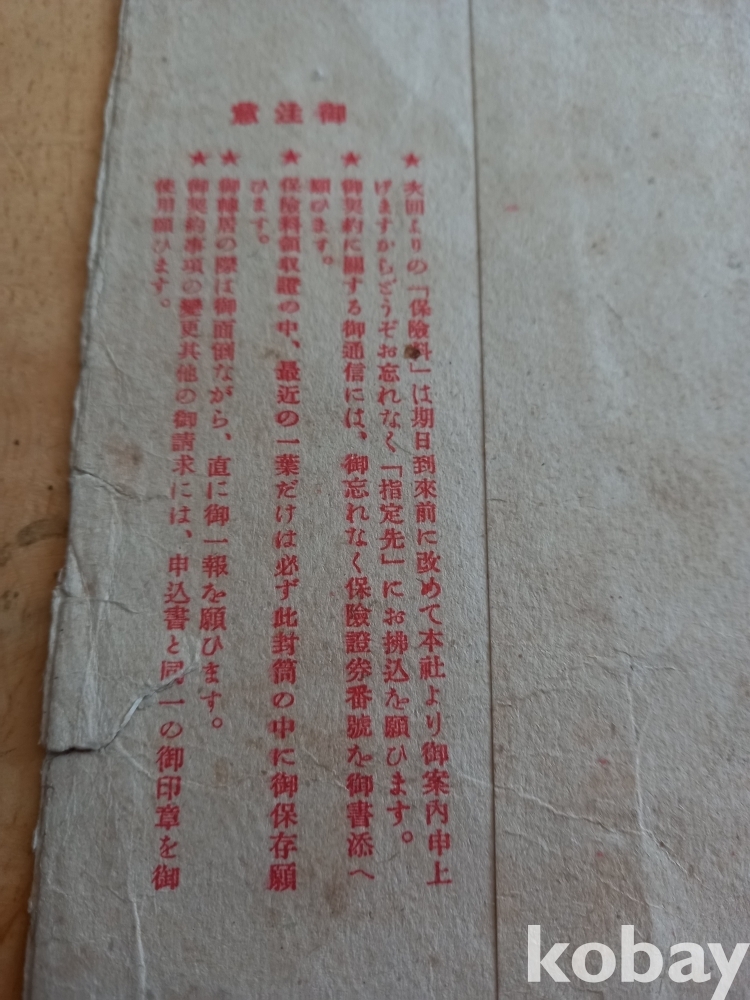 御注意
★次回よりの「保險料」は期日到來前に改めて本社より御案內申上
げますからどうぞお忘れなく「指定先」にお拂込を願ひます。
★御契約に關する御通信には、御忘れなく保險證券番號を御書添へ
願ひます。
★保險料領收證の中、最近の一葉だけは必ず此封筒の中に御保存願
ひます。
★御轉居の際は御面倒ながら、直に御一報を願ひます。
★御契約事項の變更其他の御請求には、申込書と同一の御印章を御
使用願ひます。
kobay